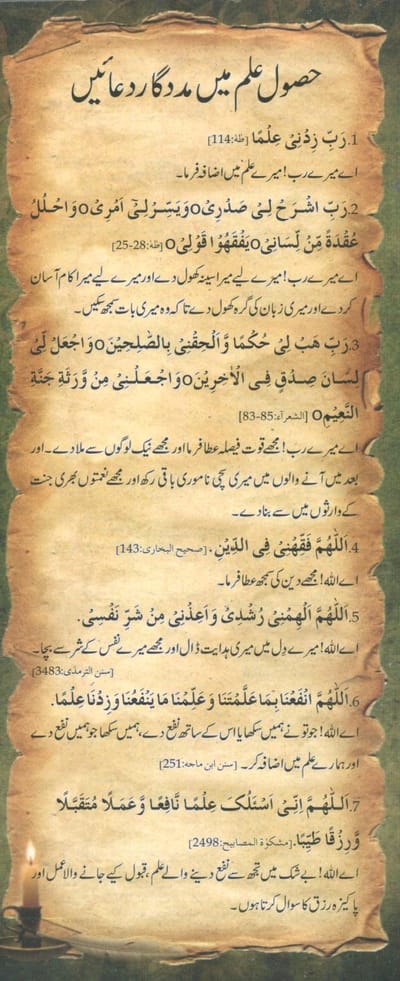 حصول علم میں مددگار دعائیں
1. رَبِّ زِدْنِیْ عِلْمًا [طٰهٰ:114]
اے میرے رب! میرے علم میں اضافہ فرما۔
2. رَبِّ اشْرَحْ لِیْ صَدْرِیْo وَیَسِّرْلِیْٓ اَمْرِیْo وَاحْلُلْ
عُقْدَةً مِّنْ لِّسَانِیْo یَفْقَهُوْا قَوْلِیْo [طٰهٰ:28-25]
اے میرے رب! میرے لیے میرا سینہ کھول دے اور میرے لیے میرا کام آسان
کردے اور میری زبان کی گرہ کھول دے تاکہ وہ میری بات سمجھ سکیں۔
3. رَبِّ هَبْ لِیْ حُكْمًا وَّاَلْحِقْنِیْ بِالصّٰلِحِیْنَo وَاجْعَلْ لِّیْ
لِسَانَ صِدْقٍ فِی الْاٰخِرِیْنَo وَاجْعَلْنِیْ مِنْ وَّرَثَةِ جَنَّةِ
النَّعِیْمِo [الشعرآء:85-83]
اے میرے رب! مجھے قوت فیصلہ عطا فرما اور مجھے نیک لوگوں سے ملادے۔ اور
بعد میں آنے والوں میں میری سچی ناموری باقی رکھ اور مجھے نعمتوں بھری جنت
کے وارثوں میں سے بنادے۔
4. اَللّٰهُمَّ فَقِّهْنِیْ فِی الدِّیْنِ. [صحیح البخاری:143]
اے اللہ! مجھے دین کی سمجھ عطا فرما۔
5. اَللّٰهُمَّ اَلْهِمْنِیْ رُشْدِیْ وَاَعِذْنِیْ مِنْ شَرِّ نَفْسِیْ.
اے اللہ! میرے دل میں میری ہدایت ڈال اور مجھے میرے نفس کے شر سے بچا۔
[سنن الترمذی:3483]
6. اَللّٰهُمَّ انْفَعْنَا بِمَا عَلَّمْتَنَا وَعَلِّمْنَا مَا یَنْفَعُنَا وَزِدْنَا عِلْمًا.
اے اللہ! جو تو نے ہمیں سکھایا اس کے ساتھ نفع دے، ہمیں سکھا جو ہمیں نفع دے
اور ہمارے علم میں اضافہ کر۔ [سنن ابن ماجہ:251]
7. اَللّٰهُمَّ اِنِّیْ اَسْئَلُکَ عِلْمًا نَّافِعًا وَّعَمَلًا مُّتَقَبَّلًا
وَّرِزْقًا طَیِّبًا. [مشکوٰۃ المصابیح:2498]
اے اللہ! بے شک میں تجھ سے نفع دینے والے علم، قبول کیے جانے والا عمل اور
پاکیزہ رزق کا سوال کرتا ہوں۔